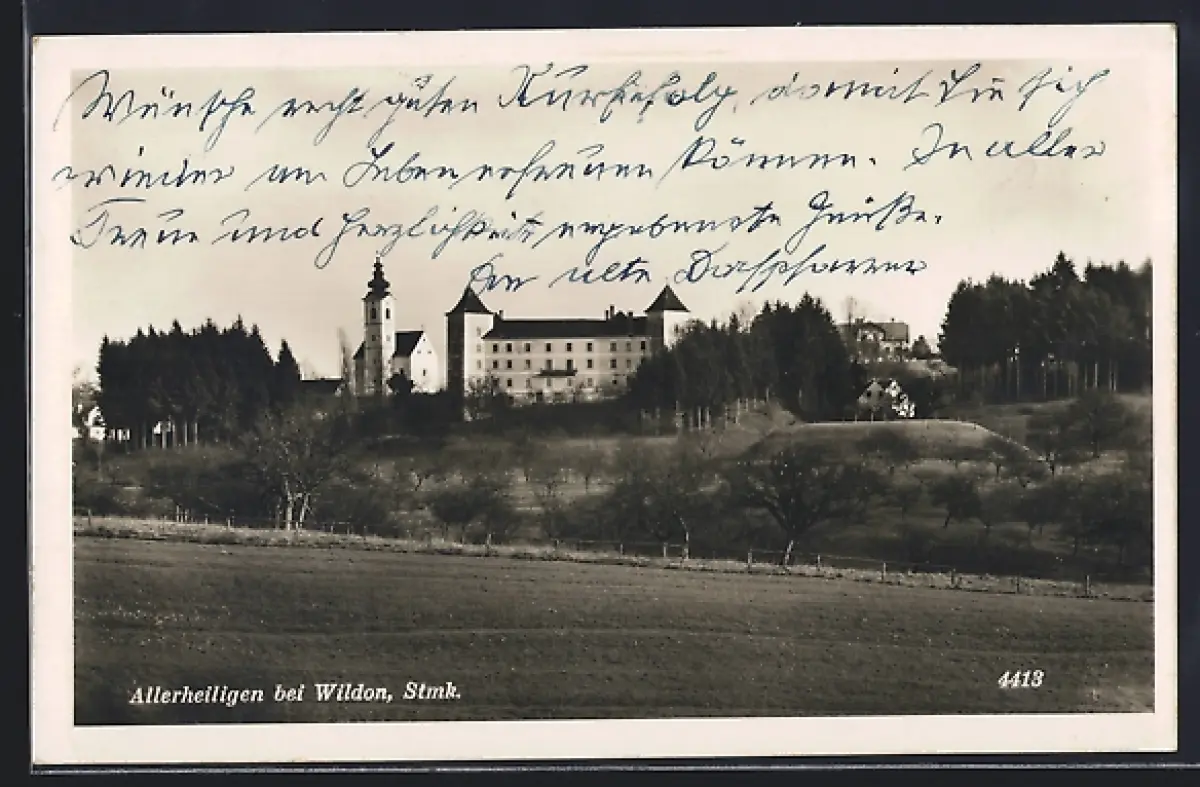 Wünsche recht guten Kurerfolg, damit Sie sich
wieder am Leben erfreuen können. In aller
Treue und Herzlichkeit ergebenste Grüße.
Der alte Dorfpfarrer
Allerheiligen bei Wildon, Stmk.
4413